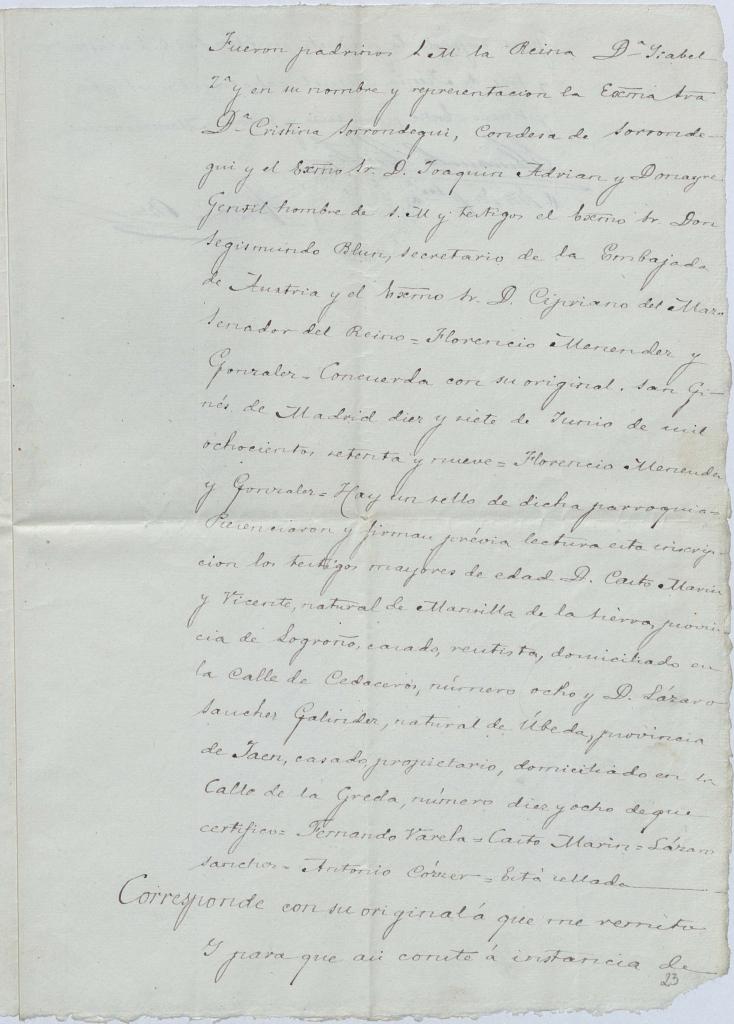 Fueron padrinos S.M la Reina D.ª Isabel
2ª y en su nombre y representacion la Excma Sra
D.ª Cristina Sorrondegui, Condesa de Sorronde-
gui y el Excmo Sr. D. Joaquin Adrian y Donayre
Gentil hombre de S.M y testigos el Excmo Sr. Don
Segismundo Blun, secretario de la Embajada
de Austria y el Excmo Sr. D. Cipriano del Mazo
Senador del Reino = Florencio Menendez y
Gonzalez = Concuerda con su original. San Gi-
nés de Madrid diez y siete de Junio de mil
ochocientos setenta y nueve = Florencio Menendez
y Gonzalez = Hay un sello de dicha parroquia =
Presenciaron y firman prévia lectura esta inscrip-
cion los testigos mayores de edad D. Casto Marin
y Vicente, natural de Mansilla de la Sierra, provin-
cia de Logroño, casado, rentista, domiciliado en
la Calle de Cedaceros, número ocho y D. Lázaro
Sanchez Galindez, natural de Úbeda, provincia
de Jaen, casado, propietario, domiciliado en la
Calle de la Greda, número diez y ocho de que
certifico = Fernando Varela = Casto Marin = Lázaro
Sanchez = Antonio Córzer = Está sellada
Corresponde con su original á que me remito
Y para que asi conste á instancia de
23